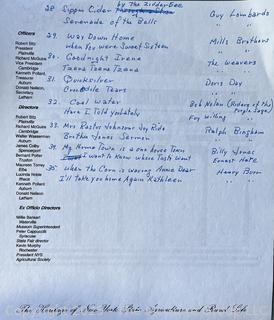 28. Sippin Cider by the ZiddyGee Guy Lombardo
Serenade of the Bells " "
Officers
29. Way Down Home Mills Brothers
When you Were Sweet Sixteen " "
Robert Bitz
President
Plainville
30. Goodnight Irene The Weavers
Tzena Tzena Tzena " "
Richard McGuire
Vice President
Cambridge
Kenneth Pollard,
Treasurer
Auburn
31. Quicksilver Doris Day
Crocodile Tears " "
Donald Neilson,
Secretary
LaFram
32. Cool Water Bob Nolan (Riders of the Purple Sage)
Have I Told you lately Foy Willing
Directors
Robert Bitz
Plainville
33. Mrs Rastus Johnson's Joy Ride Ralph Bingham
Brother Jones Sermon " "
Richard McGuire
Cambridge
Walter Wasserman
Auburn
34. My Home Town is a one horse Town Billy Jones
I want to Know where Tosti Went Ernest Hare
James Colby
Spencerport
Bernard Potter
Truxton
35. When the Corn is Waving Annie Dear Henry Burr
I'll take you home Again Kathleen " "
Maureen Torrey
Elba
Lucinda Noble
Ithaca
Kenneth Pollard
Auburn
Donald Neilson
LaFram
Ex Officio Directors
Millie Sankert
Watertown
Museum Superintendent
Peter Cappuccilli
Syracuse
State Fair director
Kevin Murphy
Rochester
President NYS
Agricultural Society
The Heritage of New York State Agriculture and Rural Life